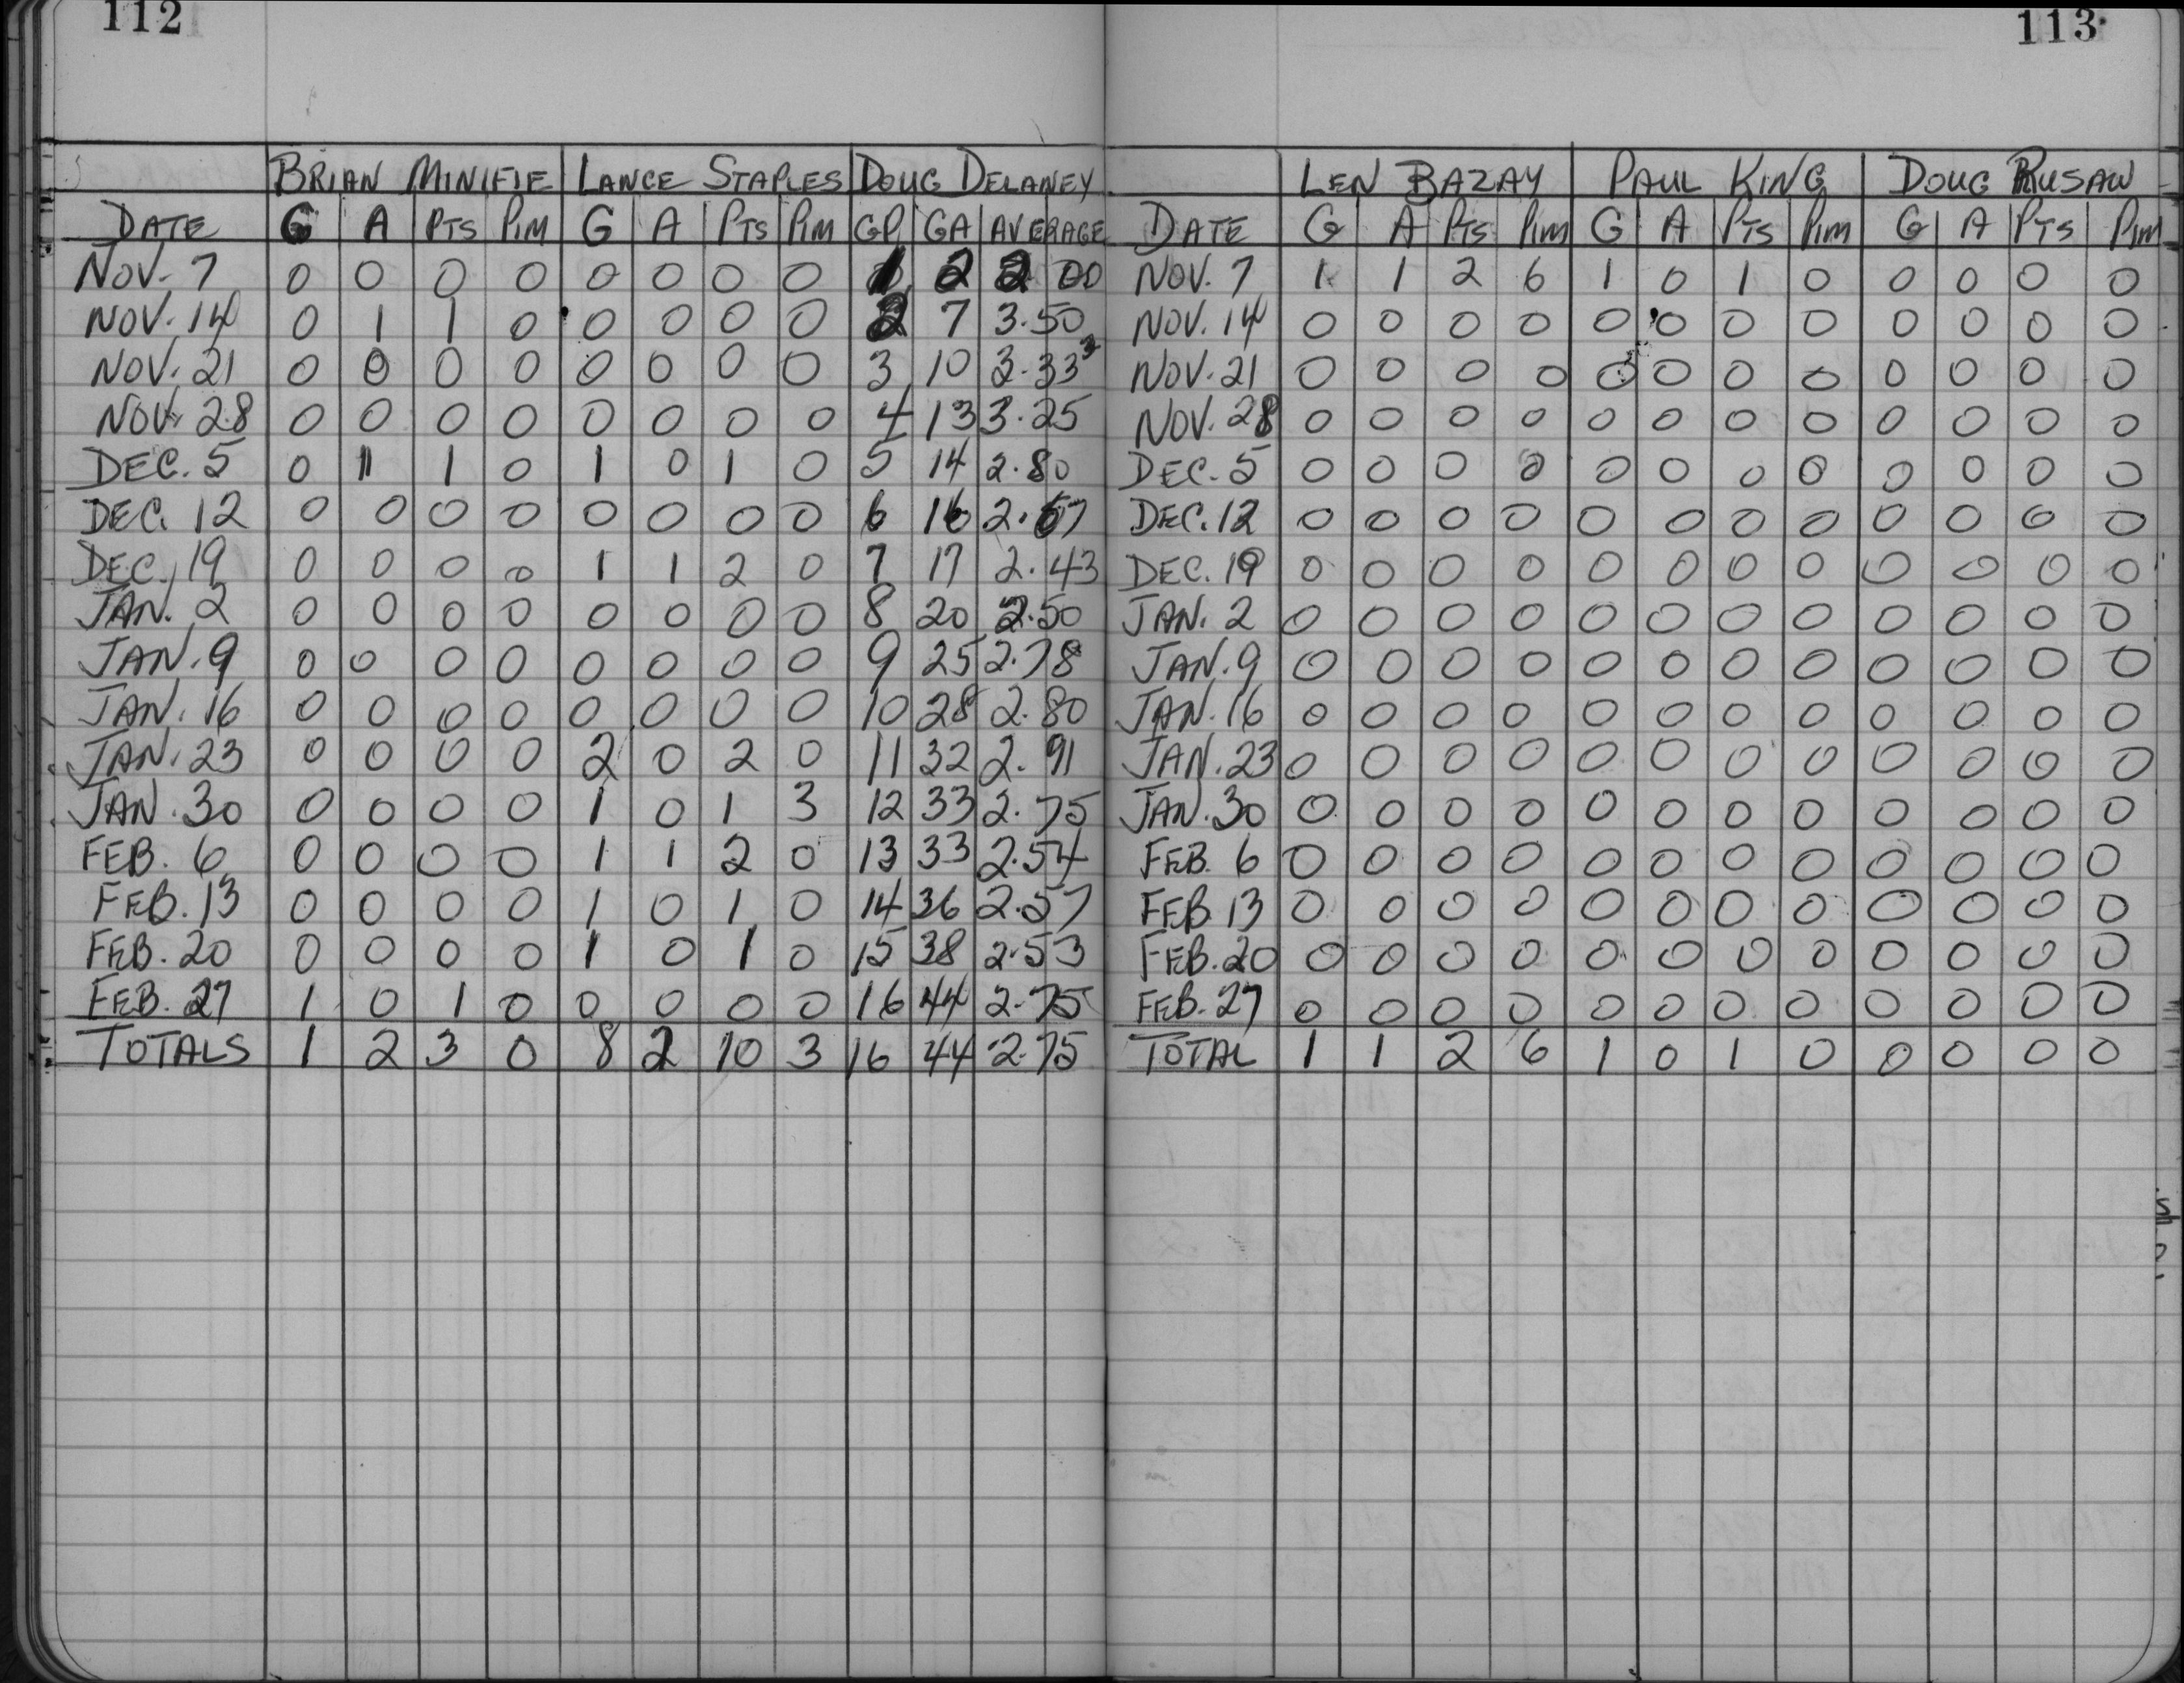 112
BRIAN MINIFIE LANCE STAPLES DOUG DELANEY
DATE G A PTS PIM G A PTS PIM GP GA AVERAGE
NOV. 7 0 0 0 0 0 0 0 0 1 2 2 00
NOV. 14 0 1 1 0 0 0 0 0 2 7 3.50
NOV. 21 0 0 0 0 0 0 0 0 3 10 3.333
NOV. 28 0 0 0 0 0 0 0 0 4 13 3.25
DEC. 5 0 1 1 0 1 0 1 0 5 14 2.80
DEC. 12 0 0 0 0 0 0 0 0 6 16 2.67
DEC. 19 0 0 0 0 1 1 2 0 7 17 2.43
JAN. 2 0 0 0 0 0 0 0 0 8 20 2.50
JAN. 9 0 0 0 0 0 0 0 0 9 25 2.78
JAN. 16 0 0 0 0 0 0 0 0 10 28 2.80
JAN. 23 0 0 0 0 2 0 2 0 11 32 2.91
JAN. 30 0 0 0 0 1 0 1 3 12 33 2.75
FEB. 6 0 0 0 0 1 1 2 0 13 33 2.54
FEB. 13 0 0 0 0 1 0 1 0 14 36 2.57
FEB. 20 0 0 0 0 1 0 1 0 15 38 2.53
FEB. 27 1 0 1 0 0 0 0 0 16 44 2.75
TOTALS 1 2 3 0 8 2 10 3 16 44 2.75
113
LEN BAZAY PAUL KING DOUG RUSAW
DATE G A PTS PIM G A PTS PIM G A PTS PIM
NOV. 7 1 1 2 6 1 0 1 0 0 0 0 0
NOV. 14 0 0 0 0 0 0 0 0 0 0 0 0
NOV. 21 0 0 0 0 0 0 0 0 0 0 0 0
NOV. 28 0 0 0 0 0 0 0 0 0 0 0 0
DEC. 5 0 0 0 0 0 0 0 0 0 0 0 0
DEC. 12 0 0 0 0 0 0 0 0 0 0 0 0
DEC. 19 0 0 0 0 0 0 0 0 0 0 0 0
JAN. 2 0 0 0 0 0 0 0 0 0 0 0 0
JAN. 9 0 0 0 0 0 0 0 0 0 0 0 0
JAN. 16 0 0 0 0 0 0 0 0 0 0 0 0
JAN. 23 0 0 0 0 0 0 0 0 0 0 0 0
JAN. 30 0 0 0 0 0 0 0 0 0 0 0 0
FEB. 6 0 0 0 0 0 0 0 0 0 0 0 0
FEB. 13 0 0 0 0 0 0 0 0 0 0 0 0
FEB. 20 0 0 0 0 0 0 0 0 0 0 0 0
FEB. 27 0 0 0 0 0 0 0 0 0 0 0 0
TOTAL 1 1 2 6 1 0 1 0 0 0 0 0